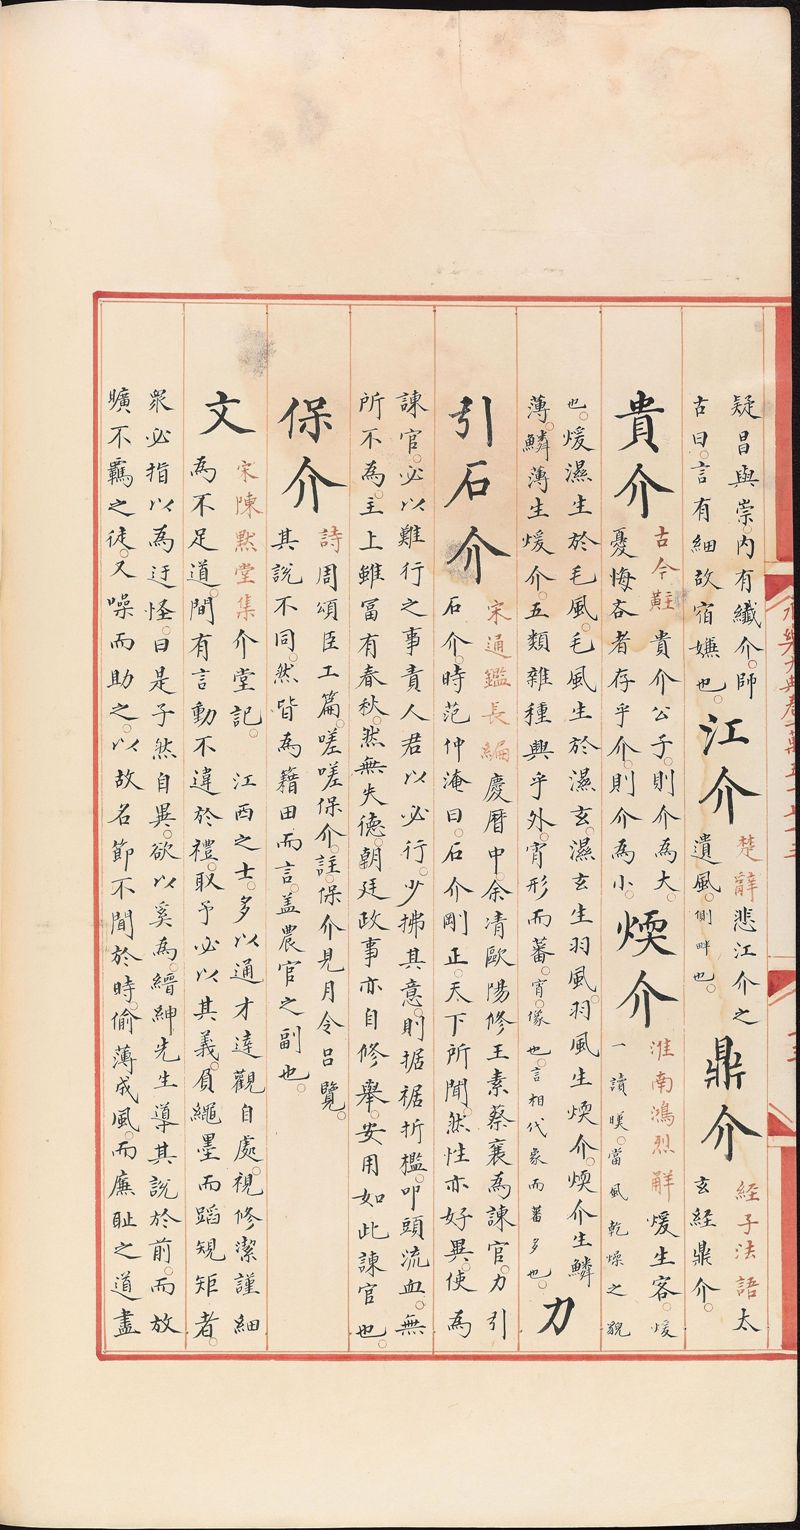 永樂大典卷一萬五千七十三
疑昌與崇。内有纖介。師
古曰。言有細故宿嫌也。
江介
楚辭悲江介之
遺風。側畔也。
鼎介
経子法語太
玄経鼎介。
貴介
古今註 貴介公子。則介為大。
憂悔吝者存乎介。則介為小。
煗介
淮南鴻烈解 煖生容。煖
一讀暵。當風乾燥之貌
也。煖濕生於毛風。毛風生於濕玄。濕玄生羽風。羽風生煗介。煗介生鱗
薄。鱗薄生煖介。五類雜種興乎外。宵形而蕃。宵。像也。言相代象而蕃多也。
力
引石介
宋通鑑長編慶曆中。余凊歐陽修王素蔡襄為諫官。力引
石介。時范仲淹曰。石介剛正。天下所聞。然性亦好異。使為
諫官。必以難行之事責人君以必行。少拂其意。則据裾折檻。叩頭流血。無
所不為。主上雖冨有春秋。然無失德。朝廷政事亦自修舉。安用如此諫官也。
保介
詩周頌臣工篇。嗟嗟保介。註。保介見月令吕覽。
其說不同。然皆為籍田而言。盖農官之副也。
文
宋陳黙堂集介堂記。 江西之士。多以通才達觀自處。視修潔謹細
為不足道。間有言動不違於禮。取予必以其義。負繩墨而蹈䂓矩者。
衆必指以為迂怪。曰是子然自異。欲以奚為。縉紳先生導其說於前。而放
曠不羈之徒。又噪而助之。以故名節不聞於時。偷薄成風。而廉耻之道盡